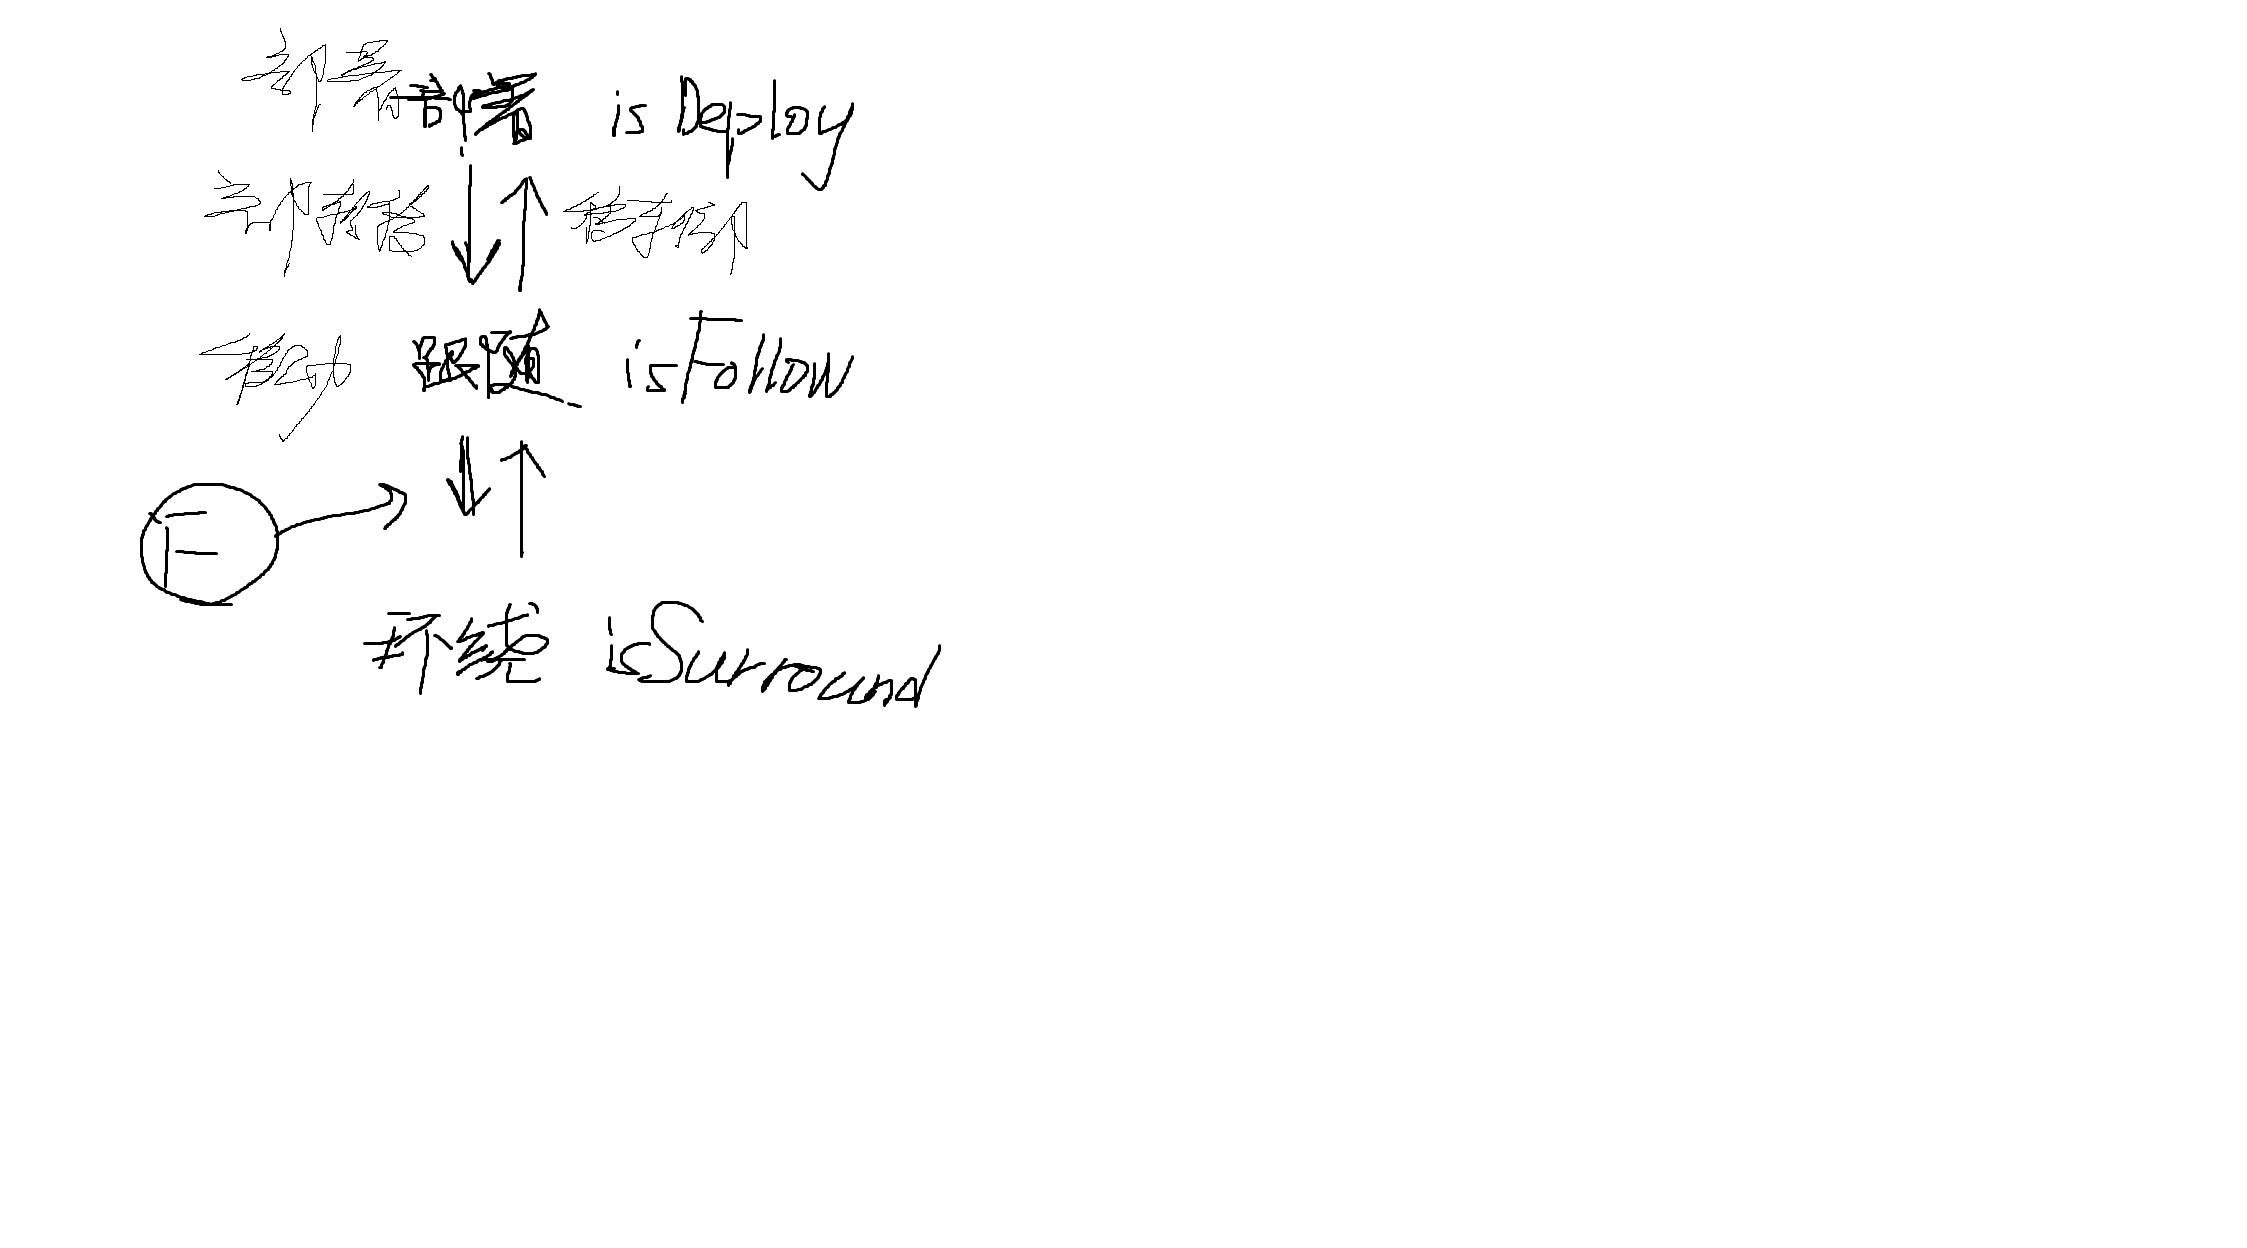 部署 部署 isDeploy
部转移 移转部
移动 跟随 isFollow
F
环绕 isSurround